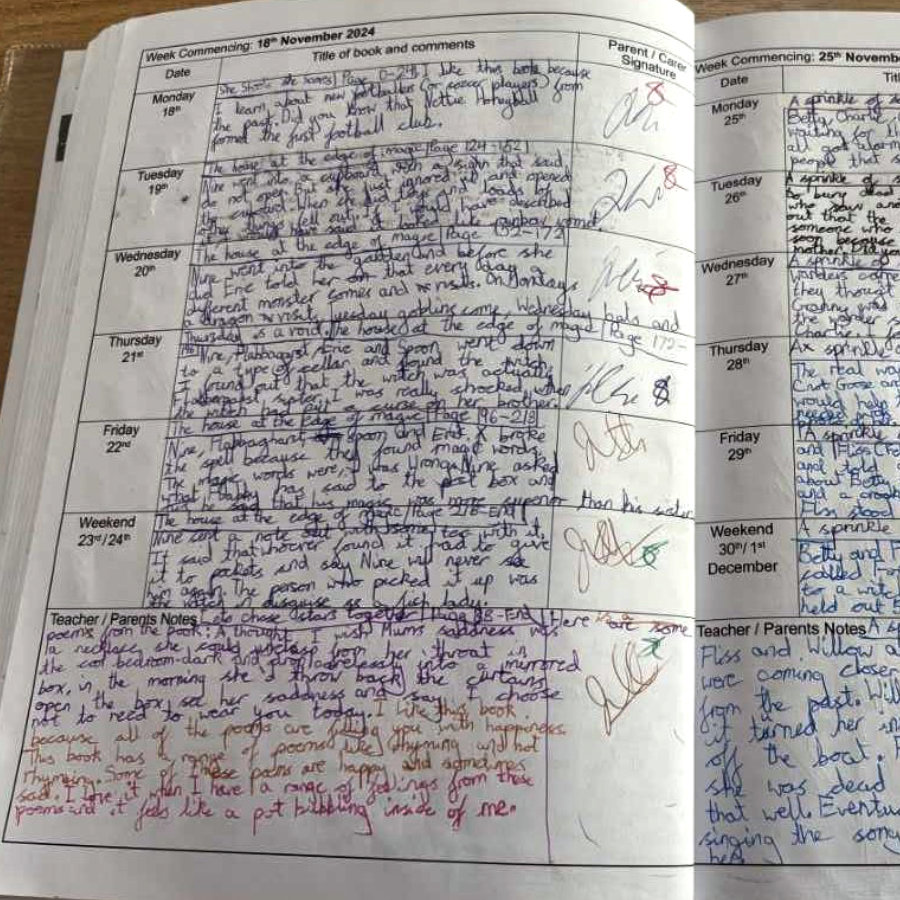 Week Commencing: 18th November 2024
Date
Title of book and comments
Parent / Carer
Signature
Monday
18th
She Shoots she Scores| Page 0-29| I like this book because
I learn about new footballers (or soccer players) from
the past. Did you know that Nettie Honeyball
formed the first football club.
Tuesday
19th
The house at the edge of magic| Page 124-152|
Nine went into a cupboard with a sign that said
do not open. But she just ignored it and opened
the cupboard. When she did loads and loads of
fell out. I would have described
have said it looked like rainbow vomit
Wednesday
20th
The house at the edge of magic| Page 152-172|
Nine went into the garden and before she
did Eric told her that every day a
different monster comes and visits. On Mondays
a dragon visits, Tuesday goblins come, Wednesday bats and
Thursday
21st
Thursday is a void. the house at the edge of magic| Page 172-
196| Nine, Flabbergast, Eric and Spoon went down
to a type of cellar and found the witch
I found out that the witch was actually
Flabbergast sister. I was really shocked when
the witch had put a curse on her brother.
Friday
22nd
The house at the edge of magic| Page 196-218|
Nine, Flabbaghast, spoon and Eric broke
the spell because they found magic words.
The magic words were, I was Wrong. Nine asked
what Flabby has said to the post box and
he said that his magic was more superior than his sister
Weekend
23rd/24th
The house at the edge of magic| Page 218-End|
Nine sent a note out with some tea with it.
It said that whoever found it had to give
it to pockets and say Nine will never see
him again. The person who picked it up was
the witch in disguise as a lady.
Teacher / Parents Notes Lets chase stars together| Page -End| Here are some
poems from the book: A thought. I wish Mums saddness was
a necklace she could unclasp from her throat in
the cool bedroom-dark and drop carelessly into a mirrored
box, in the morning she'd throw back the curtains
open the box, see her saddness and say, I choose
not to need to wear you today. I like this book
because all of the poems are filling you with happieness.
This book has a range of poems like rhyming and not
rhyming. Some of these poems are happy and sometimes
sad. I love it when I have a range of feelings from these
poems and it feels like a pot bubbling inside of me.
Week Commencing: 25th Novemb
Date
Titl
Monday
25th
A sprinkle of s
Betty, Charlie,
waiting for
all got
people that s
Tuesday
26th
A sprinkle of s
to bury dead
who saw and
out that the
someone who
soon because
Mother
Wednesday
27th
A sprinkle of
come
they thought
Granny
Charlie
Thursday
28th
A sprinkle o
The real wa
Crut Goose an
would have
needed
Friday
29th
A sprinkle
and Fliss
and told
about Betty
and a
Fliss stood
Weekend
30th/1st
December
A sprinkle
Betty and F
called For
to a witc
held out
Teacher / Parents Notes A sp
Fliss and Willow a
were coming closer
from the past. Will
it turned her in
off the boat. F
she was dead
that well. Eventu
singing the song
her